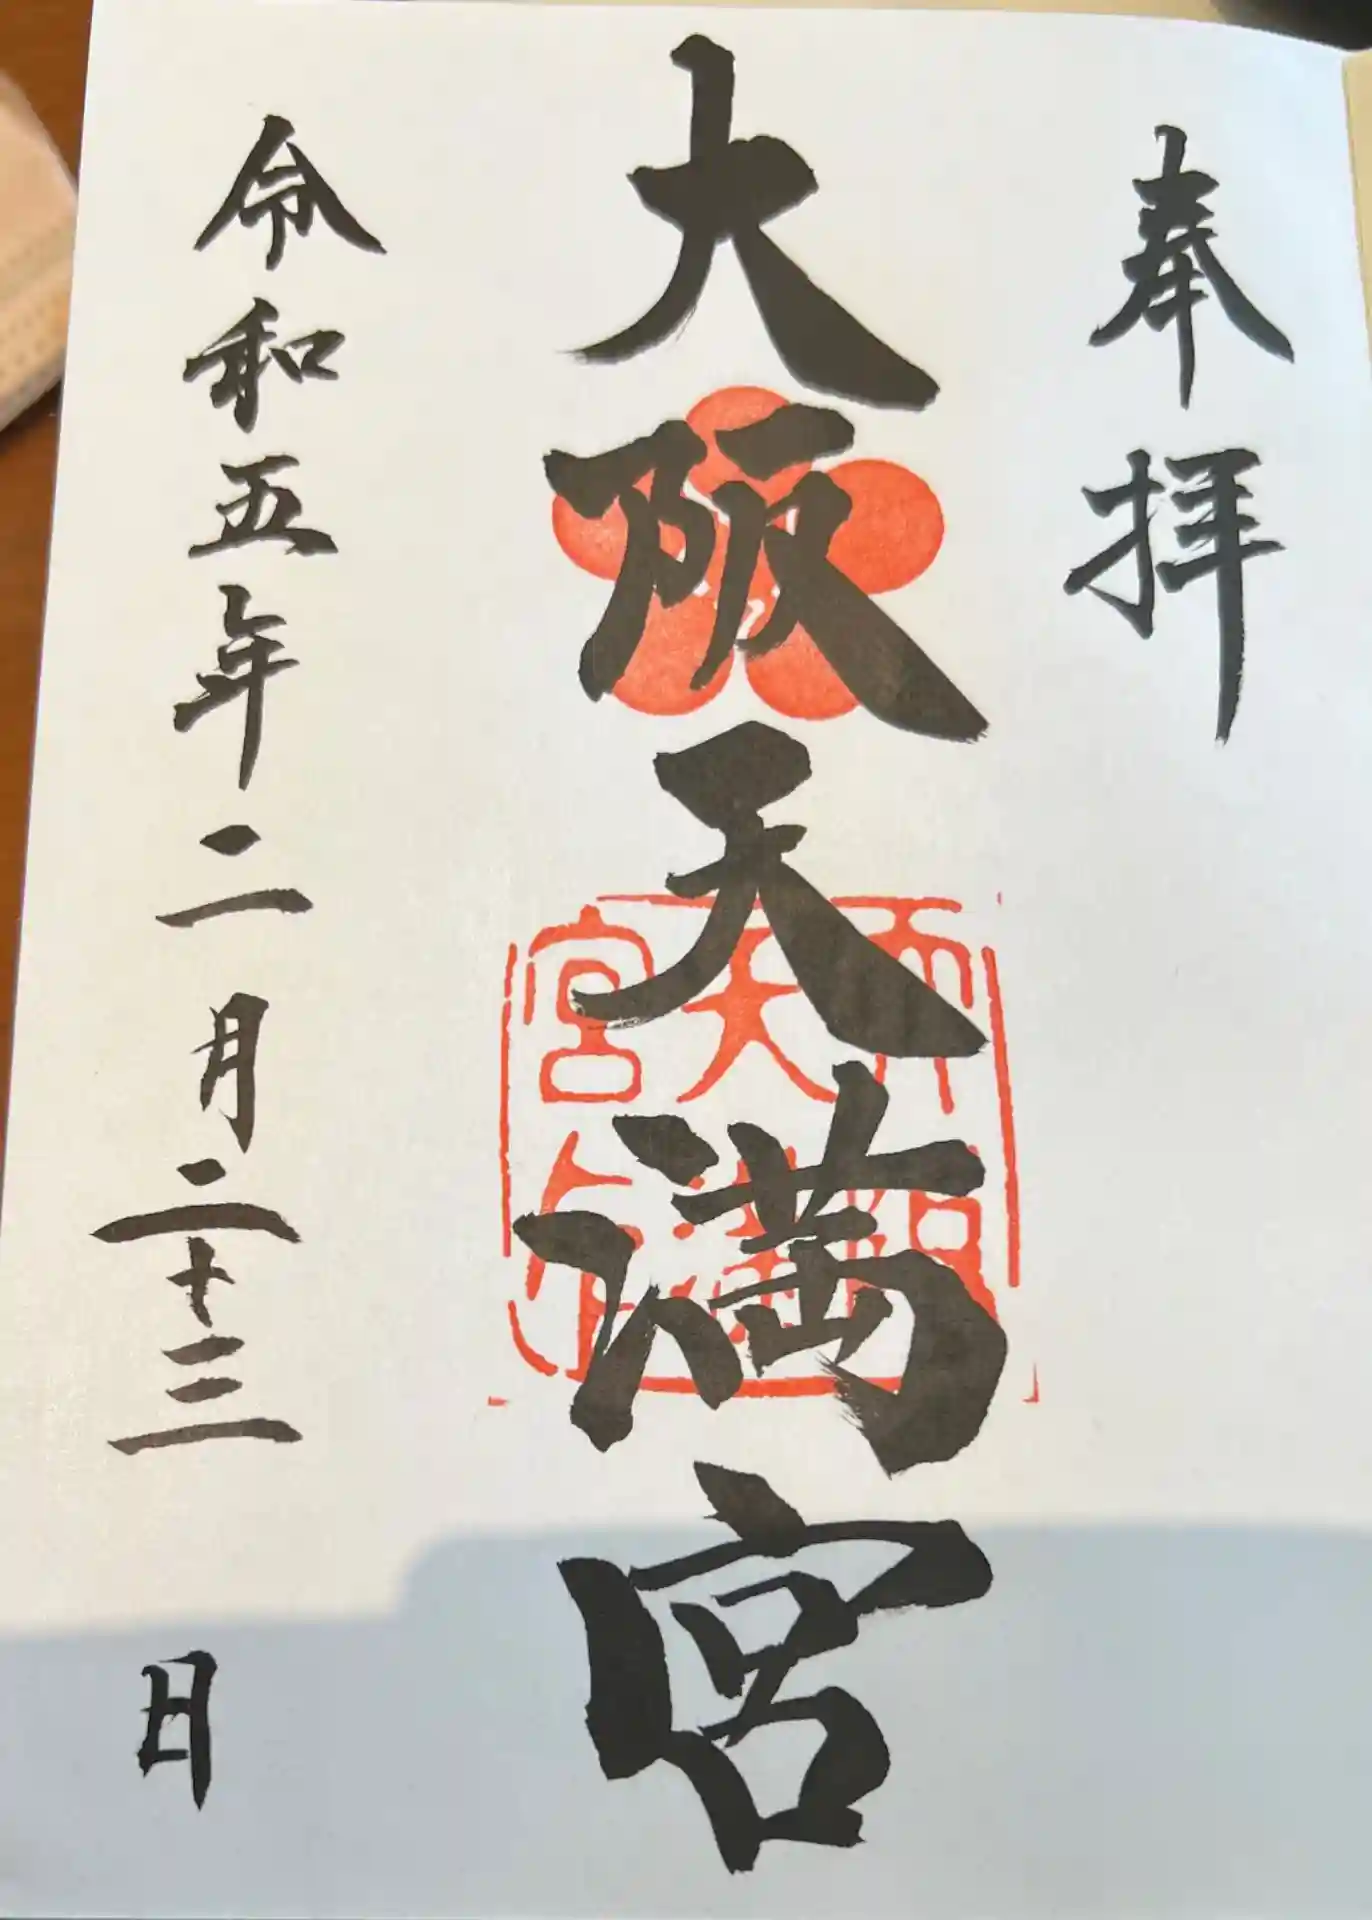 奉拝
大阪天満宮
令和五年二月二十三日
天満宮